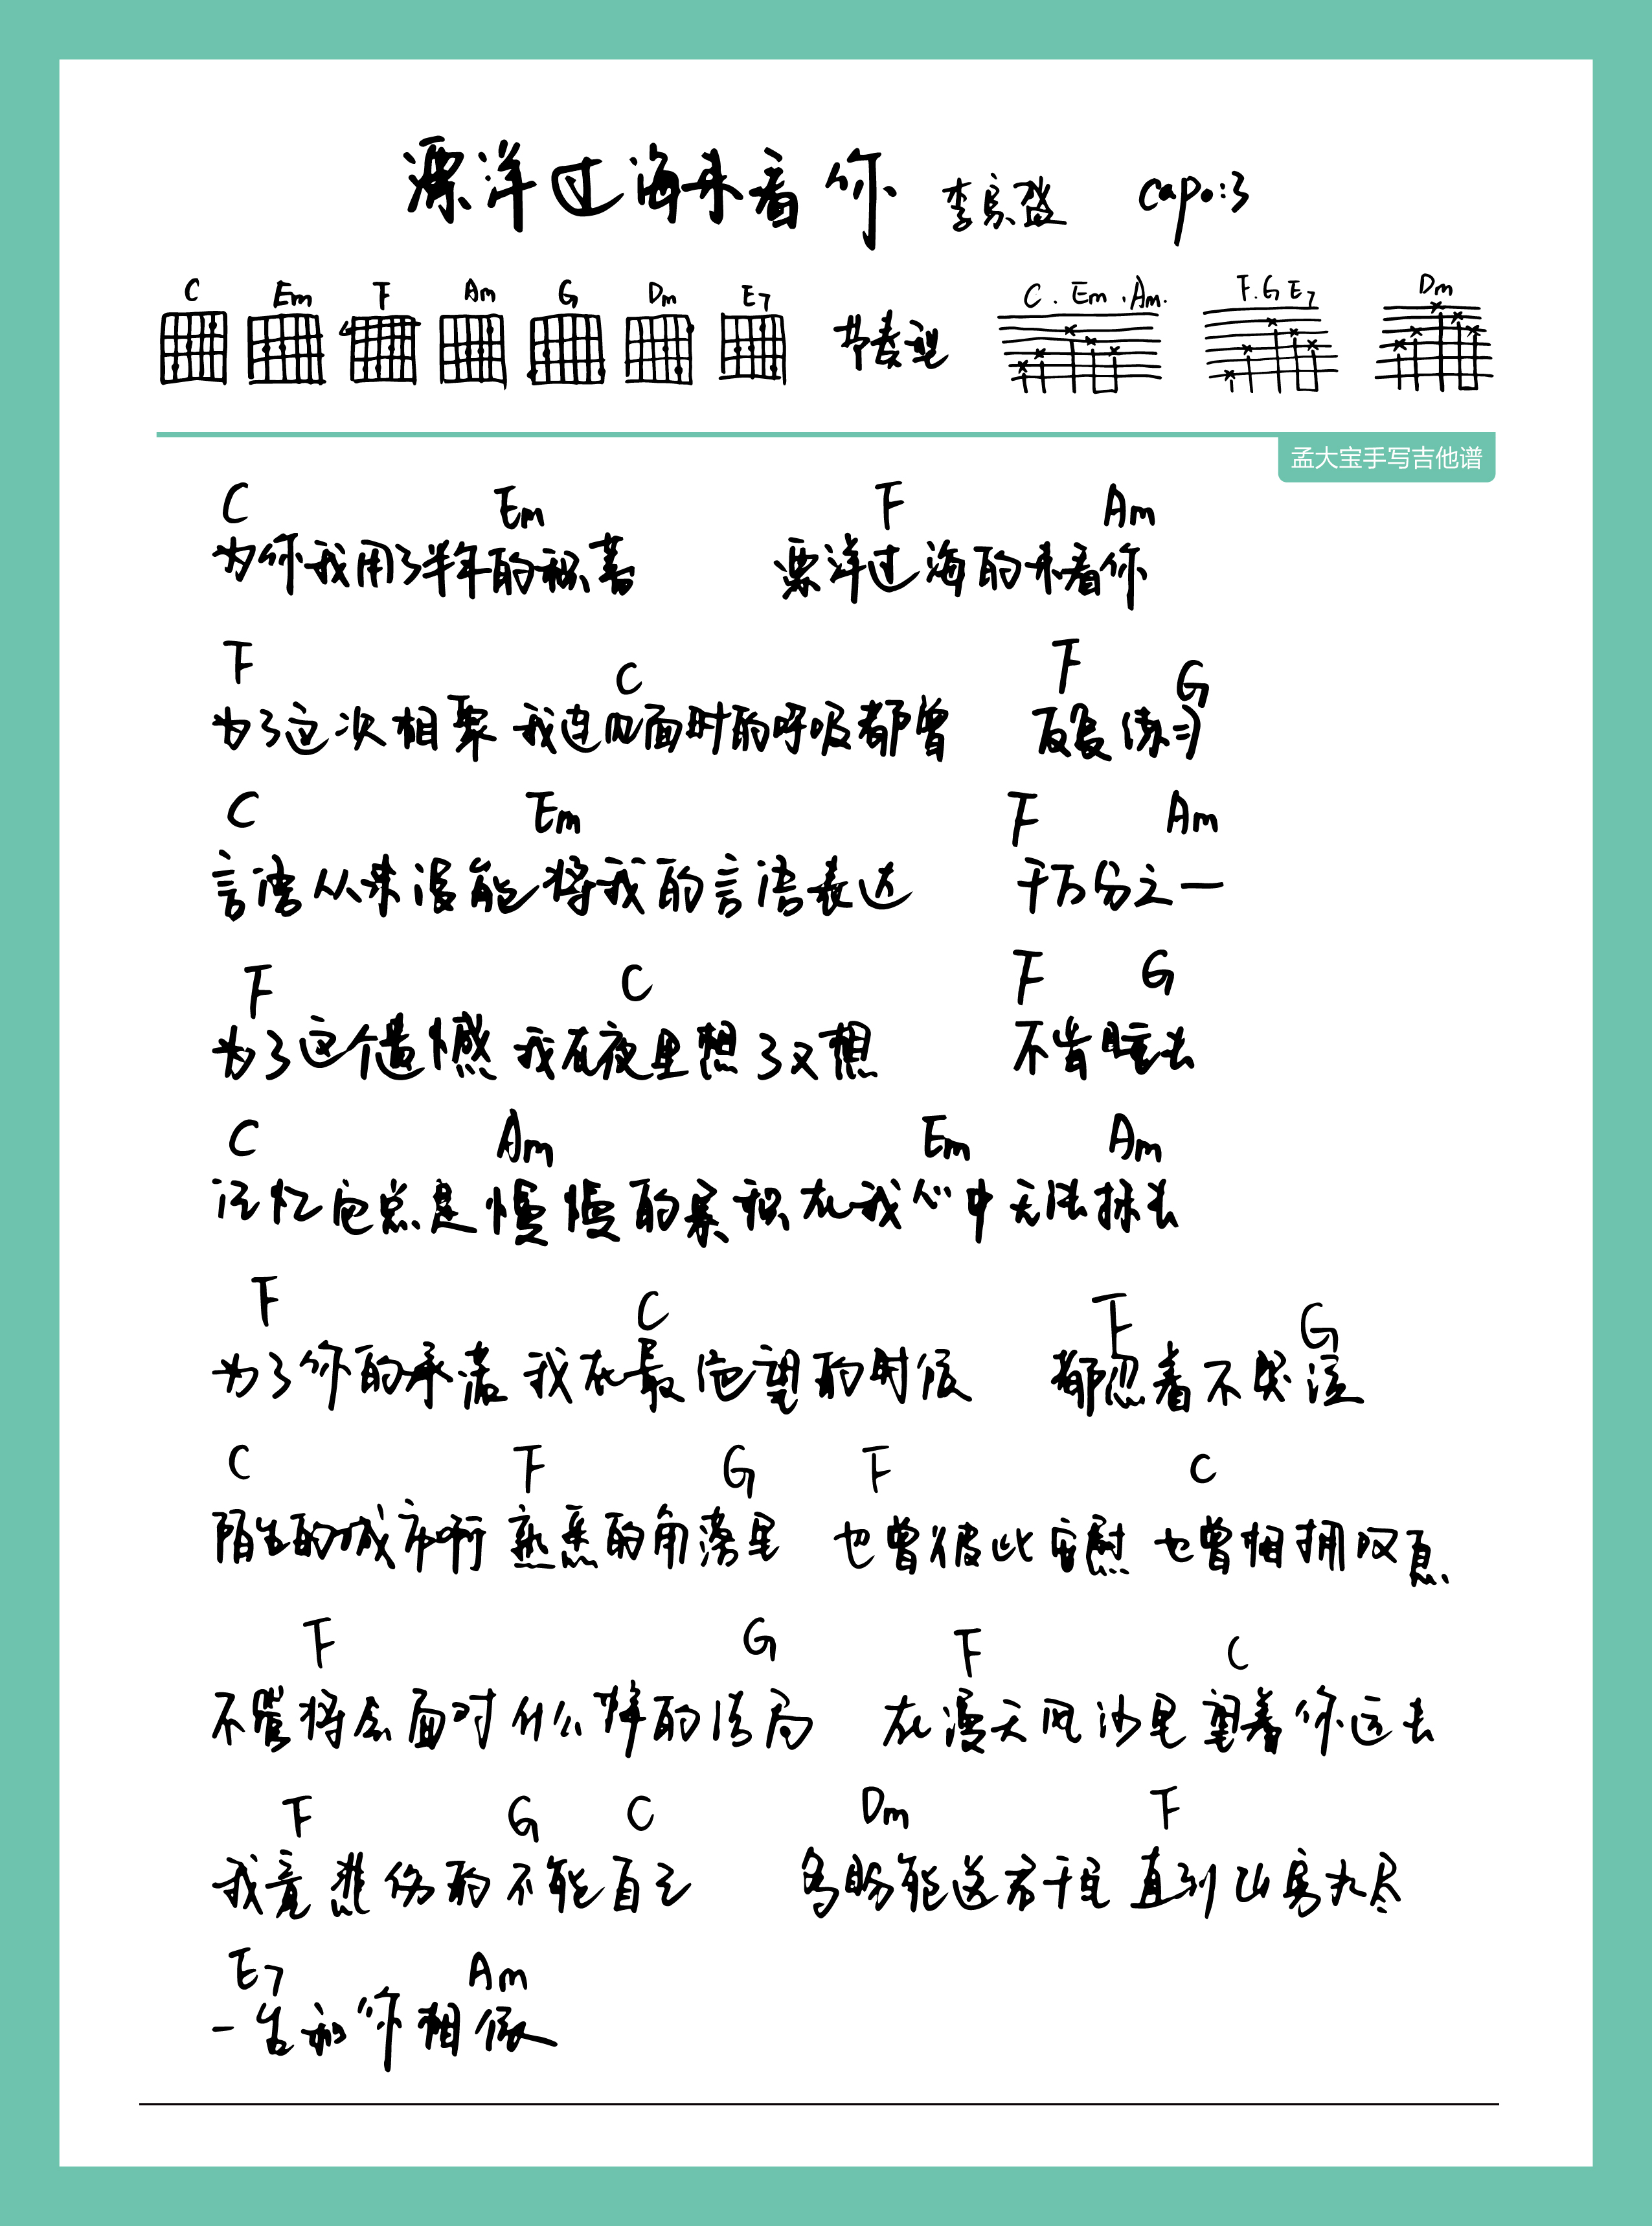 漂洋过海来看你 李宗盛 capo:3
C Em F Am G Dm E7 节奏型 C . Em . Am. F.G E7 Dm
孟大宝手写吉他谱
C Em F Am
为你我用了半年的积蓄 漂洋过海的来看你
F C F G
为了这次相聚 我连见面时的呼吸都曾 反复练习
C Em F Am
言语从来没能将我的言语表达 千万分之一
F C F G
为了这个遗憾 我在夜里想了又想 不肯睡去
C Am Em Am
记忆它总是慢慢的累积在我心中无法抹去
F C F G
为了你的承诺 我在最绝望的时候 都忍着不哭泣
C F G F C
陌生的城市啊 熟悉的角落里 也曾彼此安慰 也曾相拥叹息
F G F C
不管将会面对什么样的结局 在漫天风沙里望着你远去
F G C Dm F
我竟悲伤的不能自已 多盼能送君千里 直到山穷水尽
E7 Am
一生和你相依